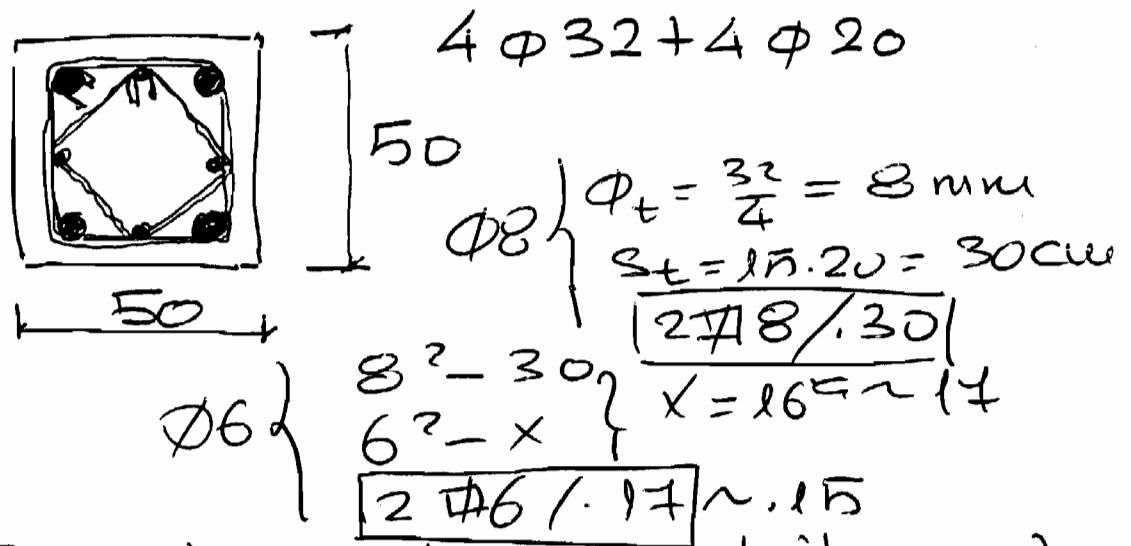 4 ϕ 32 + 4 ϕ 20
50
50
Ø8 { ϕt = 32/4 = 8 mm
St = 15.20 = 30 cm
8 / .30
Ø6 { 8² — 30 }
6² — x
x = 16 ~ 17
6 / .17 ~ .15